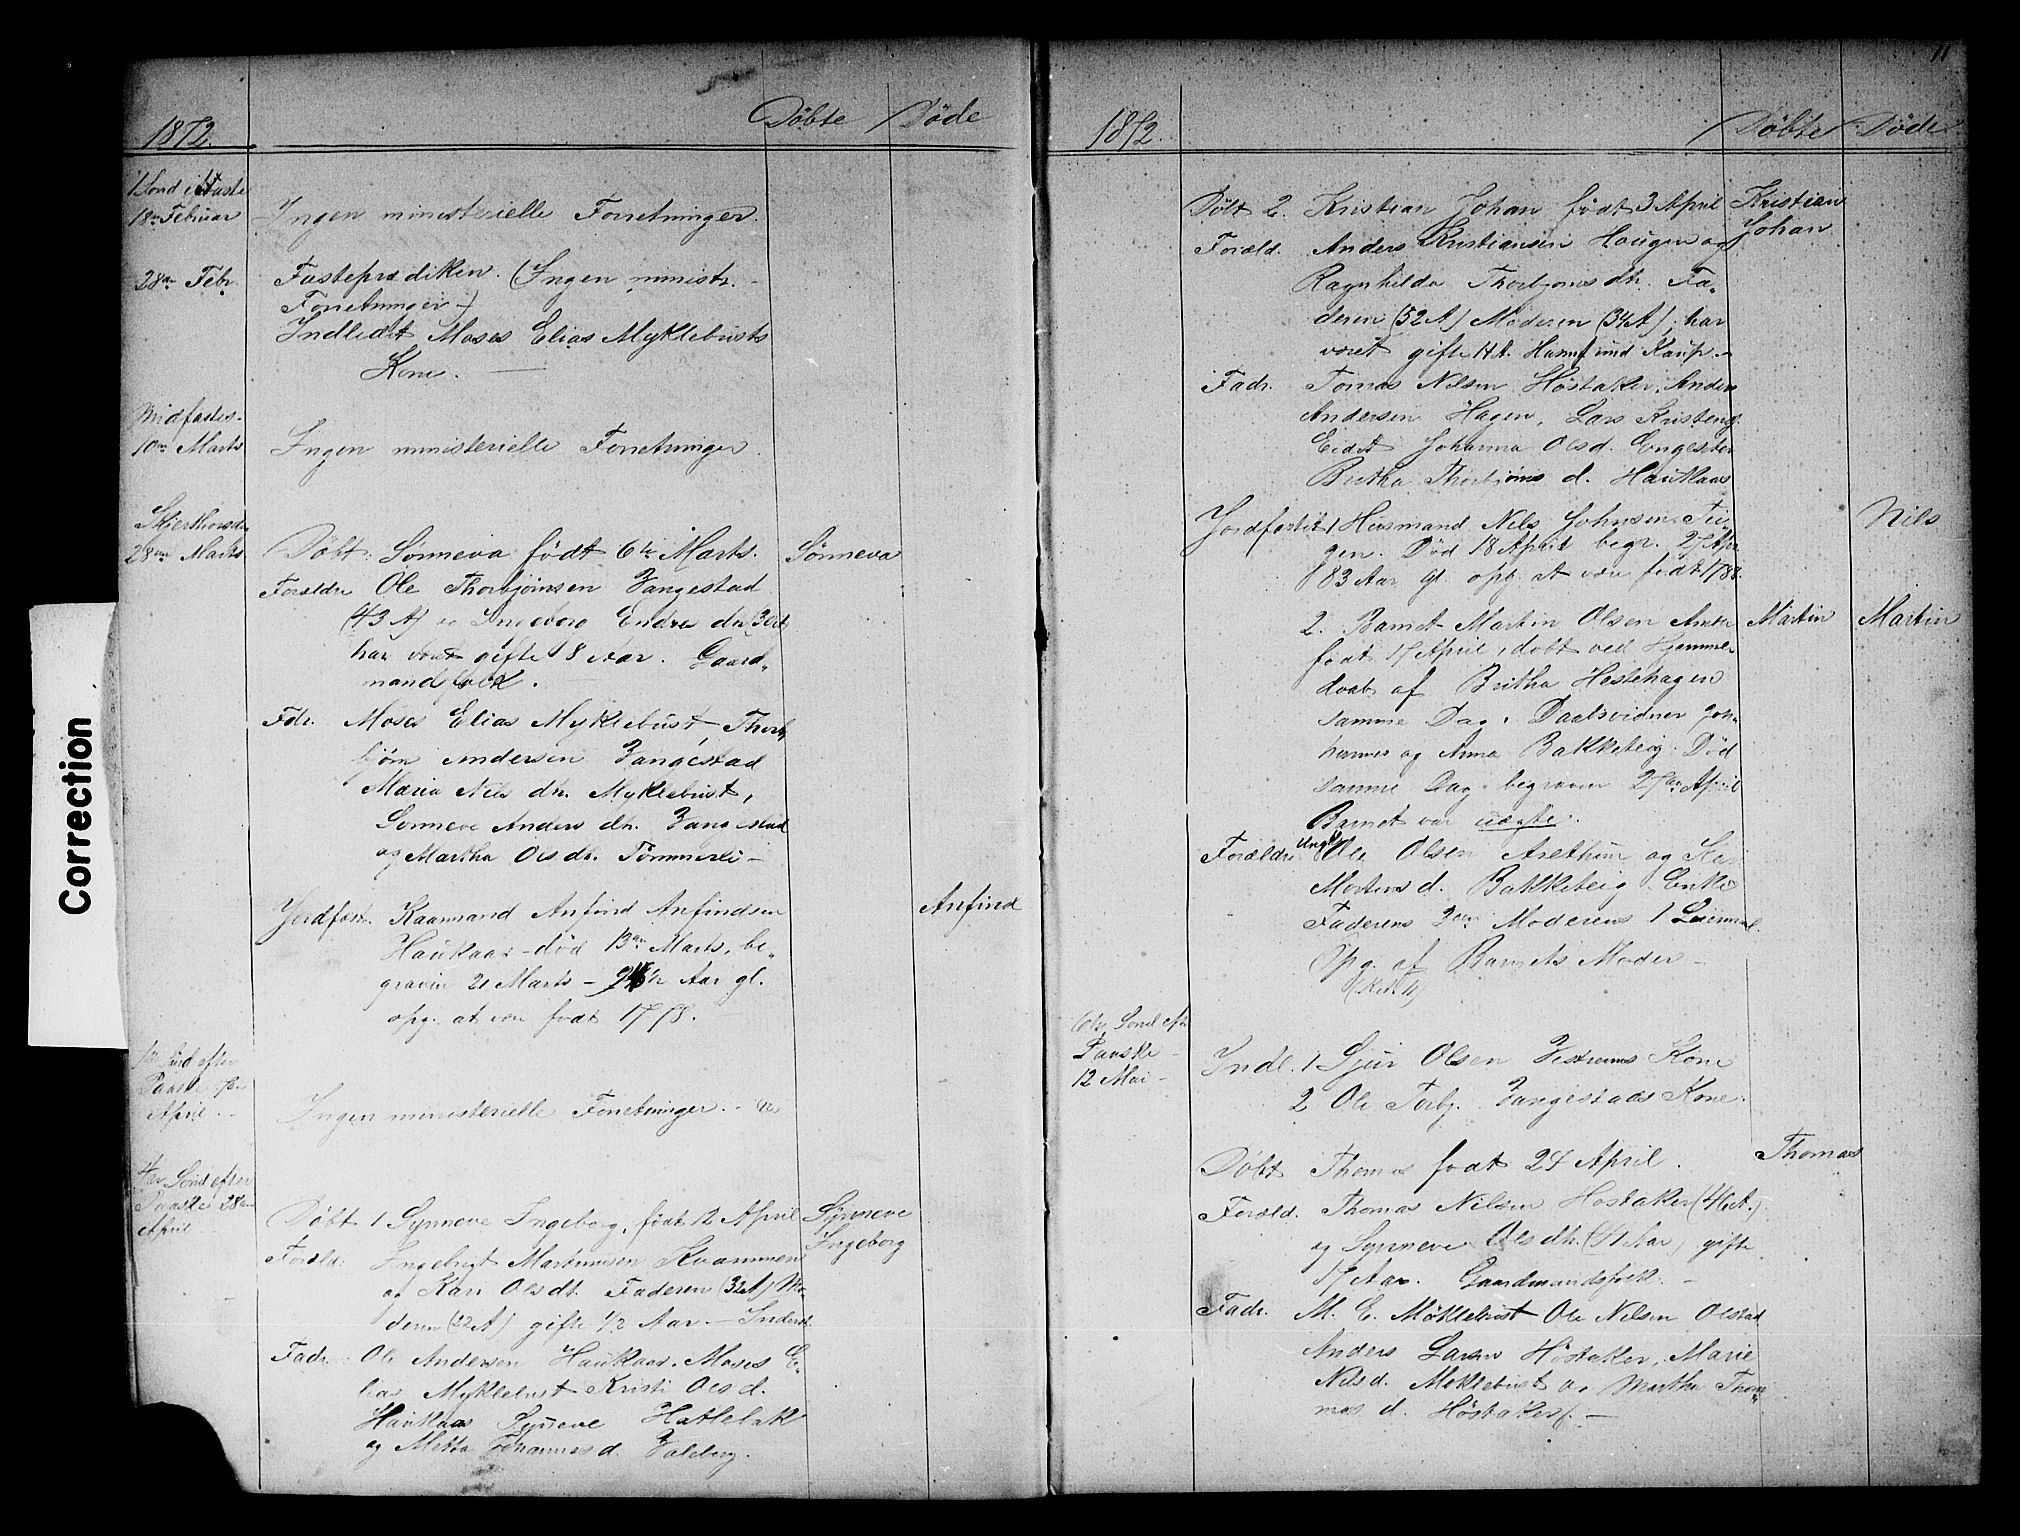 1872.
Döbte
Döde
1 Sønd i Faste
18de Februar
Ingen ministerielle Forretninger.
28de Febr.
Fasteprædiken. (Ingen ministr.
Forretninger -)
Indledet Moses Elias Myklebusts
Kone.
Midfastes-
10de Marts
Ingen ministerielle Forretninger.
Skjerthorsdag
28de Marts
Döbt: Sönneva födt 6te Marts.
Sönneva
Forældre Ole Thorbjörnsen Vangestad
(43 A) og Ingeborg Endre dtr
har været gifte 18 Aar. Gaard-
mandsfolk.
Fdr. Moses Elias Myklebust, Thorb-
jörn Andersen Vangestad
Maria Nils dtr. Myklebust,
Sönneve Anders dtr. Vangestad
og Martha Ols dtr. Tömmerli -
Jordfæst. Kaarmand Anfind Anfindsen
Anfind
Haukaas - död 13de Marts, be-
graven 21 Marts - Aar gl.
opg. at være födt 1778.
Sönd efter
Paaske 7de
April.
Ingen ministerielle Forretninger.
4de Sönd efter
Paaske 28de
April
Döbt 1 Synneve Ingeborg, födt 12 April
Synneve
Ingeborg
Foreld. Ingebrigt Martinusen Kvammen
og Kari Olsdt. Faderen (32 A) Mo-
deren (22 A) gifte 1/2 Aar - Inderst.
Fadr. Ole Andersen Haukaas, Moses E-
lias Myklebust Kristi Olsd.
Haukaas Synneve Hatlebak
og Metta Johannesd. Valeberg.
11
1872.
Döbte
Döde
Döbt 2. Kristian Johan födt 3 April
Kristian
Johan
Foræld. Anders Kristiansen Haugen og
Ragnhilda Thorbjørnsdtr. Fa-
deren (52 A) Moderen (34 A), har
været gifte
Fadr. Tomas Nilsen Höstaker, Anders
Andersen Hagen, Lars Kristens
Eidet Johanna Olsd. Engesæter
Britha Thorbjörns d. Haukaas
Jordfæstet 1 Husmand Nils Johnsen Tei-
Nils
gen. Död 18 April begr. 27 Apr.
83 Aar gl. opg. at være födt 1788.
2. Barnet Martin Olsen
Martin
Martin
födt 17 April, döbt ved Hjemme-
daab af Britha Hestehagen
samme Dag. Daabsvidner Joh-
hannes og Anna Bakketeig. Död
samme Dag begraven 27de April
Barnet var uægte.
Forældre Ungk. Ole Olsen Arethun og Kari
Mortensd. Bakketeig Enke
Faderens 2det Moderens 1 Leiermaal.
Opg. af Barnets Moder -
6te Sönd efter
Paaske -
12 Mai -
Indl. 1 Sjur Olsen Vestrems Kone
2 Ole Torbj. Vangestads Kone.
Döbt Thomas födt 24 April.
Thomas
Foræld. Thomas Nilsen Höstaker (46 A.)
og Synneve Olsdtr. (41 Aar) gifte
17 Aar. Gaardmandsfolk. -
Fadr. M. E. Möklebust Ole Nilsen Olstad
Anders Larsen Höstaker, Marie
Nilsd. Möklebust og Martha Thom-
mas d. Höstaker. -
Correction